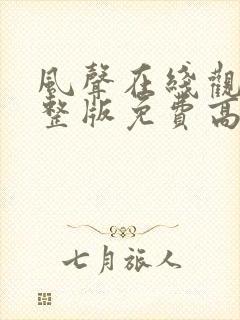 風聲在綫觀
整版免費高
七月旅人